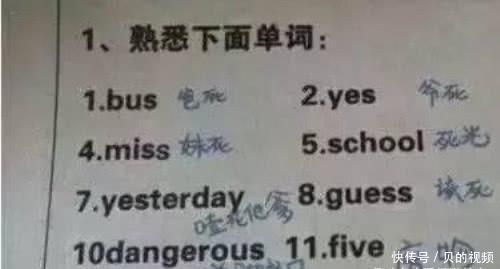 1、熟悉下面单词:
1.bus 爸死 2.yes 爷死
4.miss 妹死 5.school 死光
7.yesterday 8.guess 该死
10dangerous 11.five
快传号/贝的视频